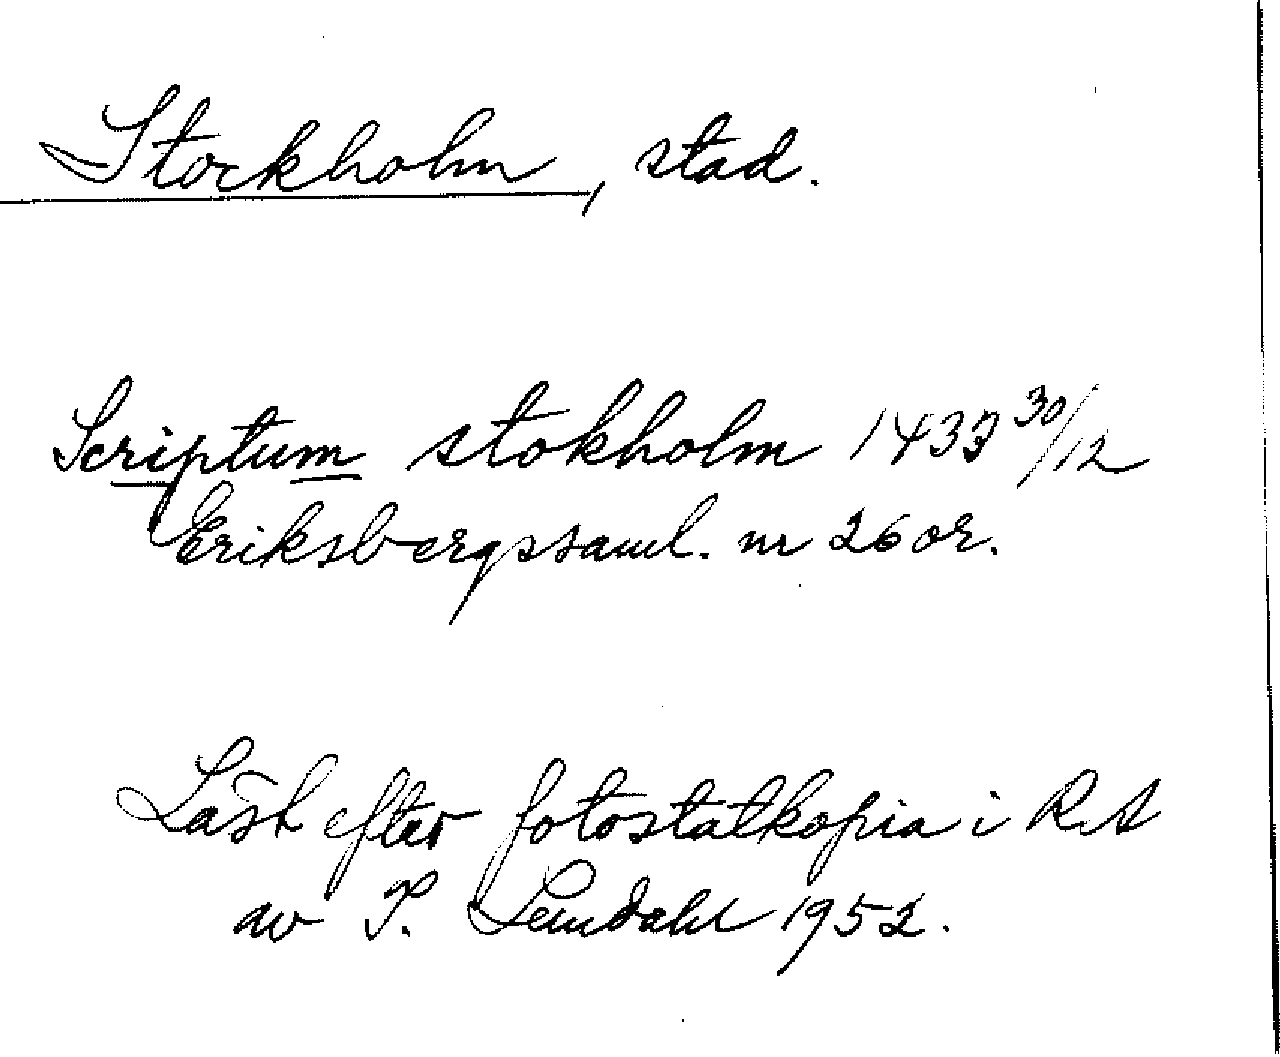 Stockholm, stad.
Scriptum stokholm 1433 30/12
Eriksbergssaml. nr 26 or.
Läst efter fotostatkopia i RA
av I. Lundahl 1952.